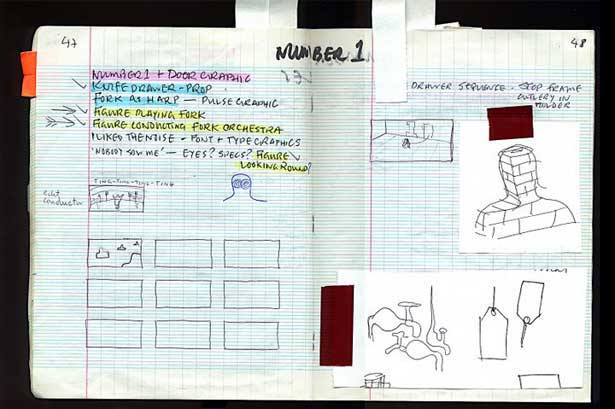 47
NUMBER 1
48
NUMBER 1 + DOOR GRAPHIC
KNIFE DRAWER - PROP
FORK AS HARP — PULSE GRAPHIC
FIGURE PLAYING FORK
FIGURE CONDUCTING FORK ORCHESTRA
I LIKED THE NOISE - FONT + TYPE GRAPHICS
'NOBODY SAW ME' — EYES? SPECS? FIGURE
LOOKING ROUND?
TING-TING-TING-TING
conductor
DRAWER SEQUENCE - STOP FRAME
CUTLERY IN
HOLDER